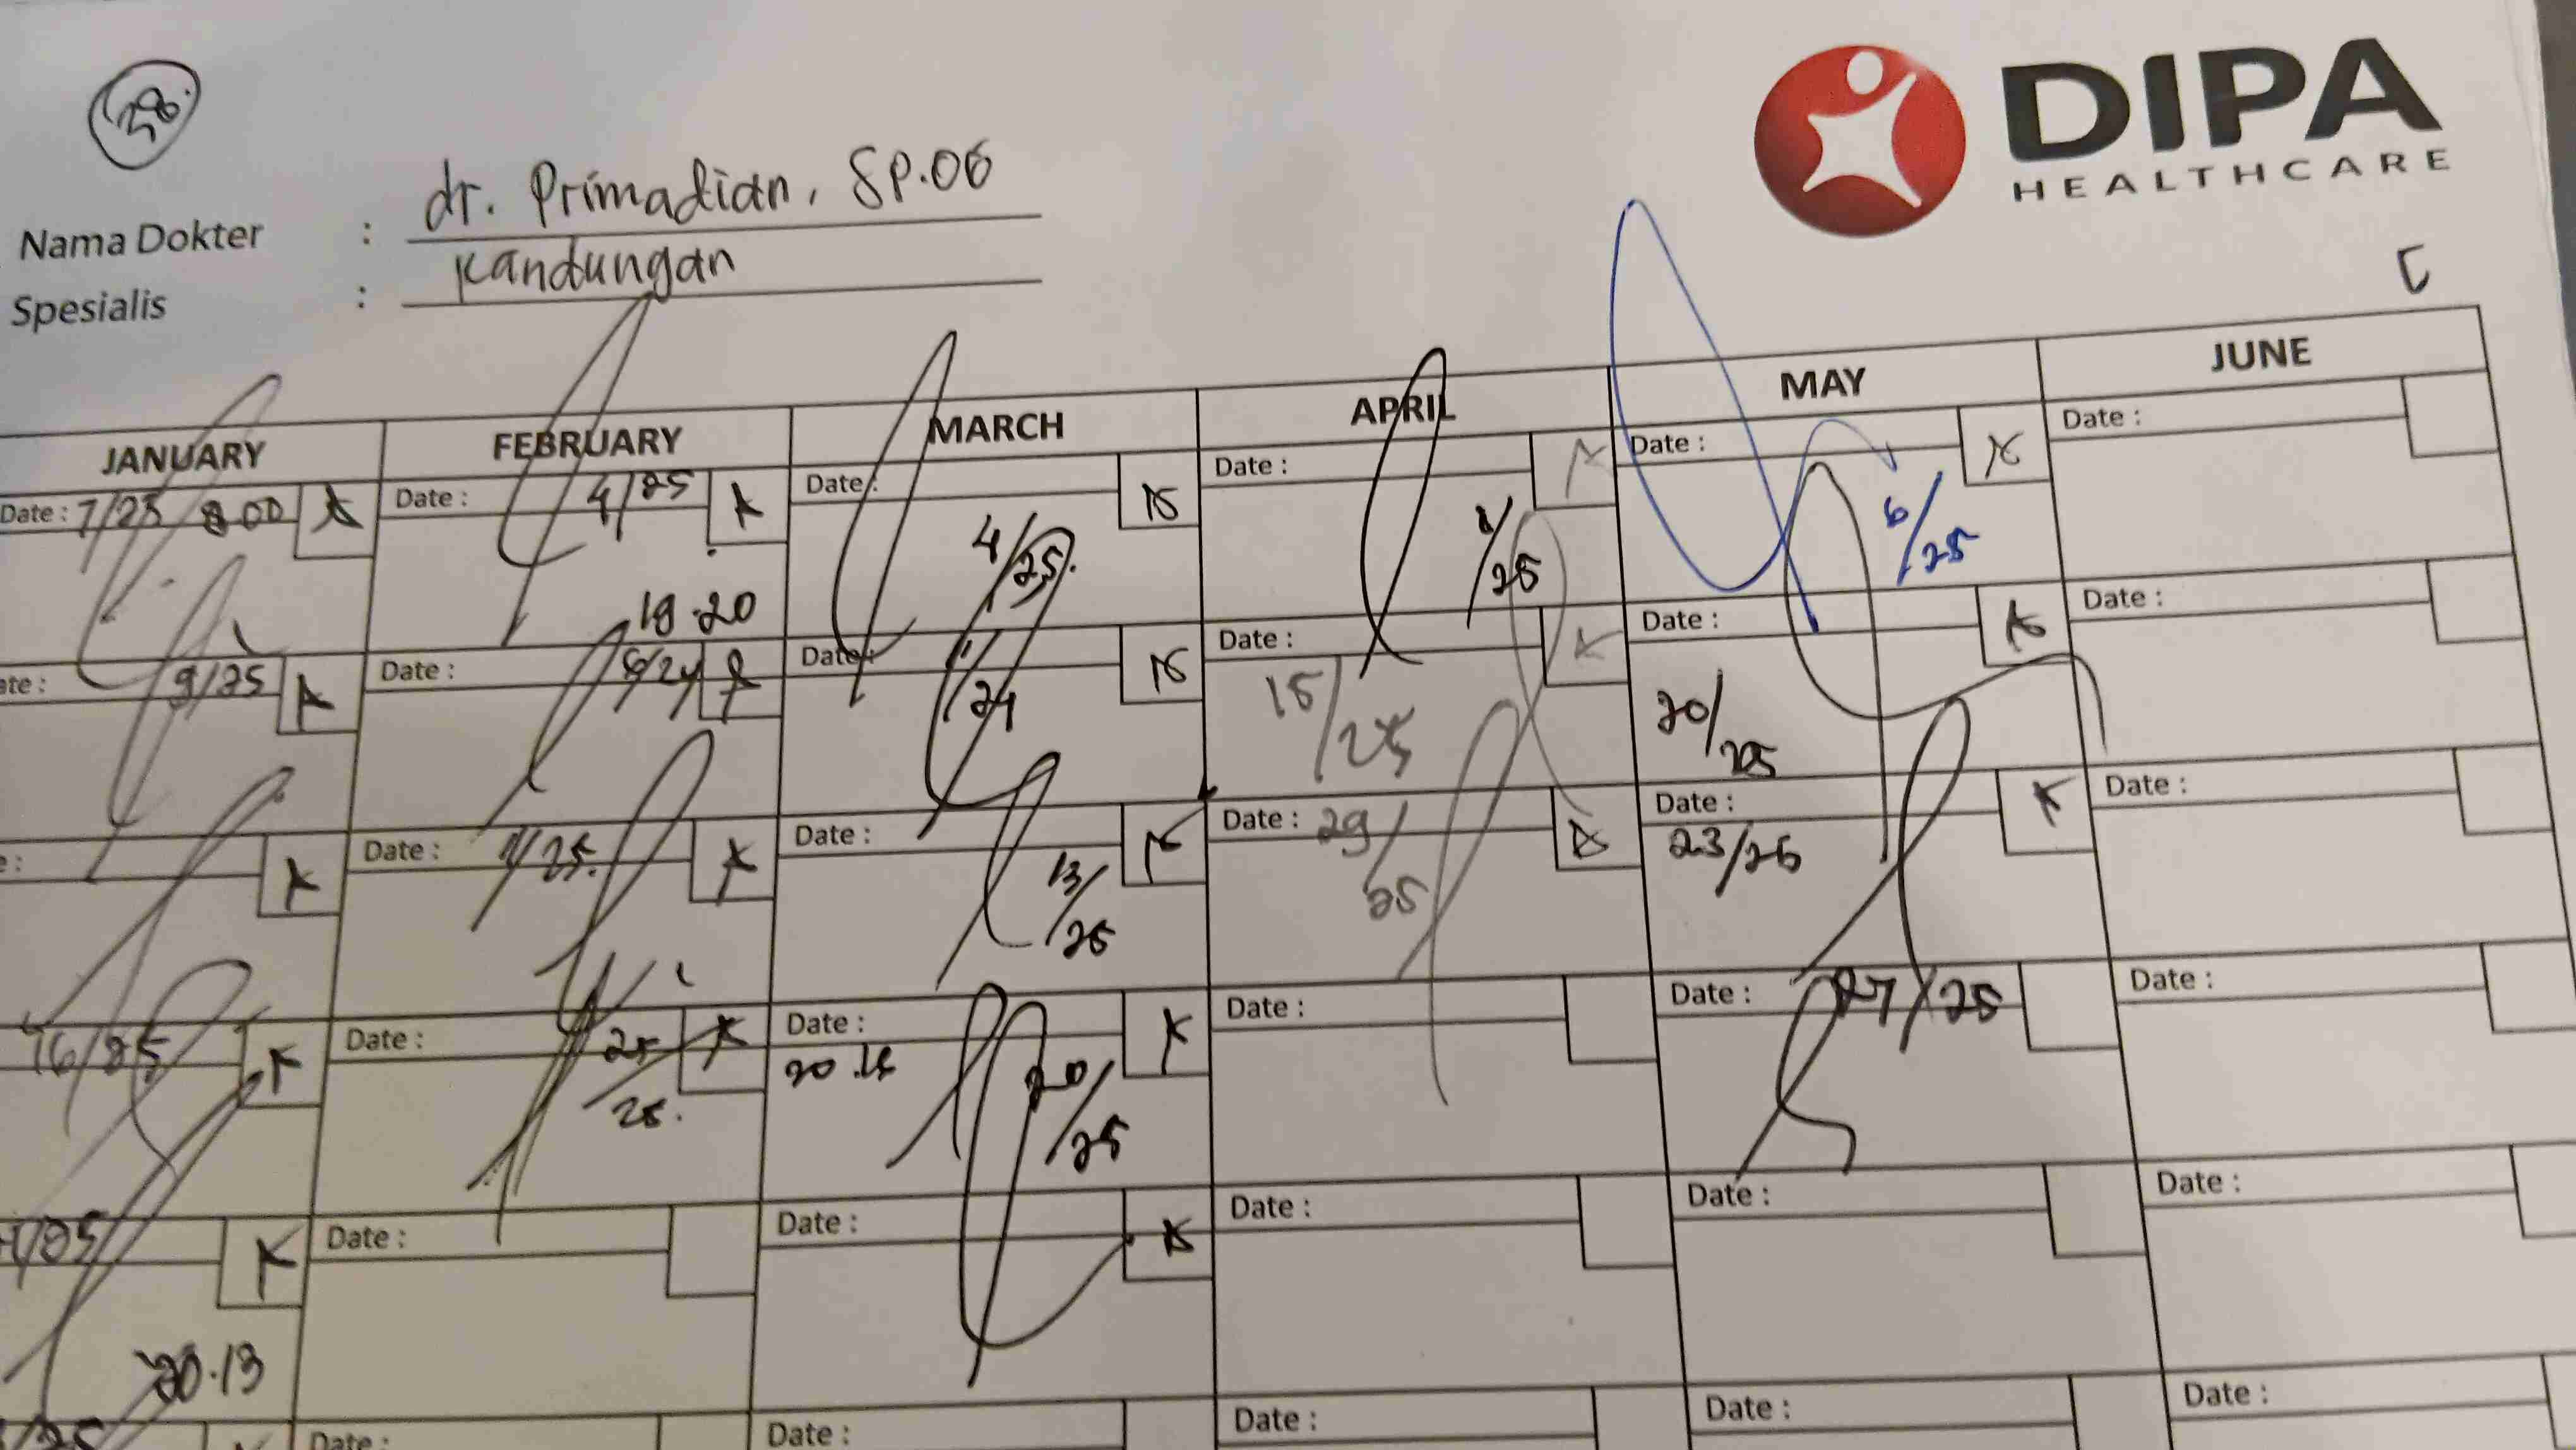 38.
DIPA
HEALTHCARE
Nama Dokter : dr. Primadian, SP.OG
Spesialis : Kandungan
JANUARY FEBRUARY MARCH APRIL MAY JUNE
Date : 7/25 8.00 Date : 4/25 Date : Date : Date : Date :
4/25. 1/25 6/25
19.20
9/25 Date : 6/24 Date : Date : Date : Date :
11/24 15/25 20/25
Date : 11/25. Date : Date : 29/25 Date : Date :
13/25 23/25
16/25 Date : 25/25. Date : Date : Date : 27/25 Date :
20.15 20/25
/25 Date : Date : Date : Date : Date :
20.13
/25 Date : Date : Date : Date : Date :